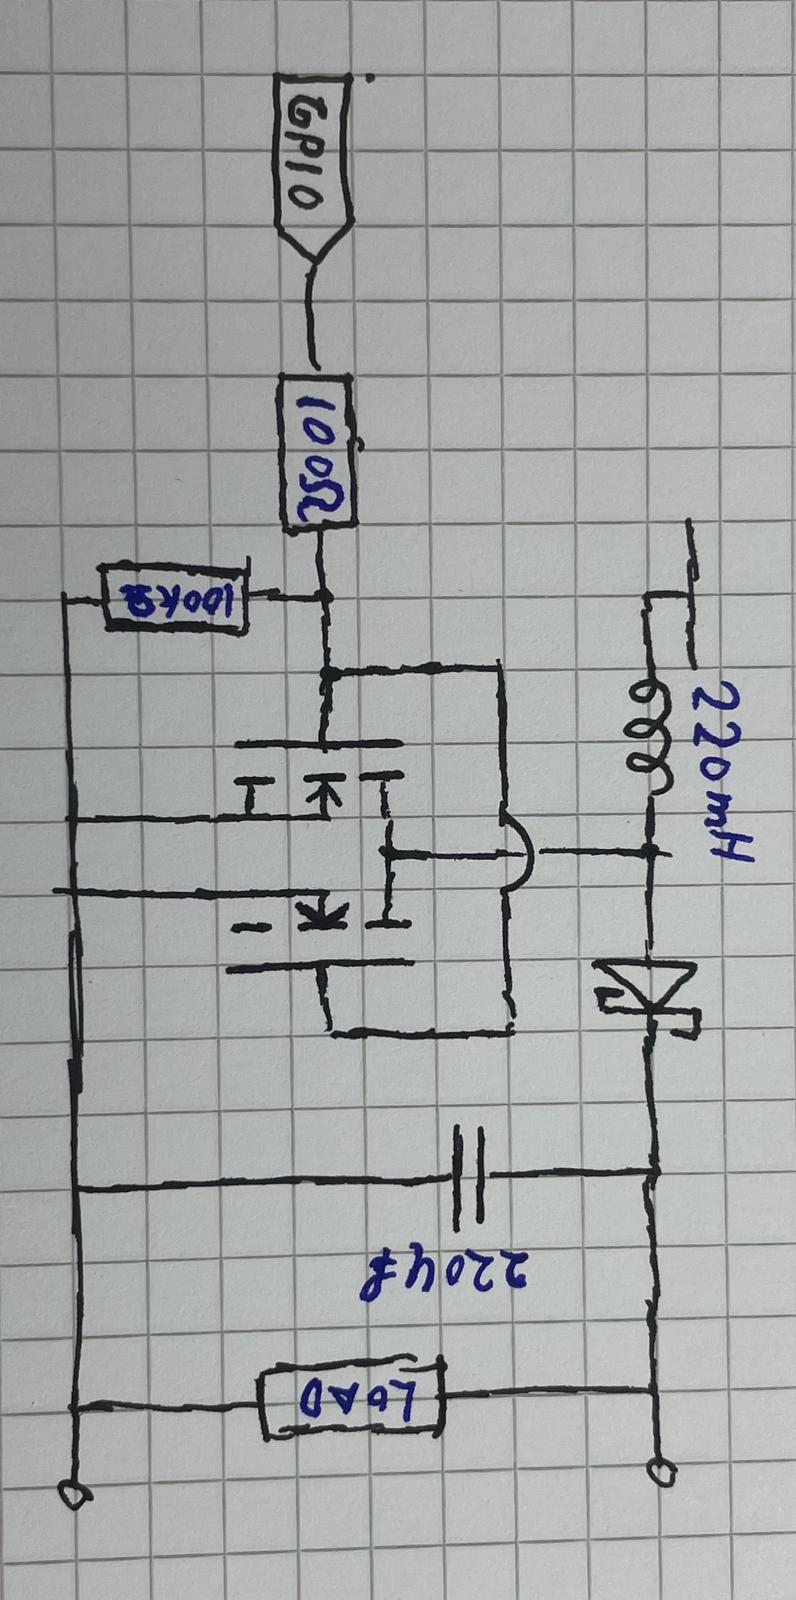 GPIO
100Ω
100KΩ
220mH
220µf
LOAD